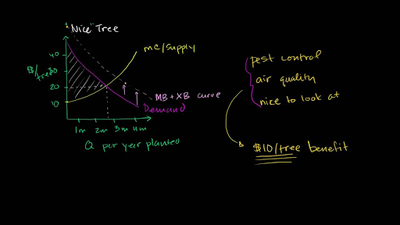 "Nice" Tree
mc/supply
40
$/tree 30
20
10
1m 2m 3m 4m
MB + XB curve
Demand
Q per year planted
pest control
air quality
nice to look at
$10/tree benefit